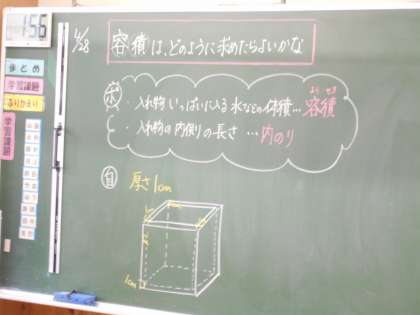 156
4/28
容積は、どのように求めたらよいかな
まとめ
学習課題
ふりかえり
学習課題
ようせき
・入れ物いっぱいに入る水などの体積…容積
・入れ物の内側の長さ…内のり
自
厚さ1cm
1cm